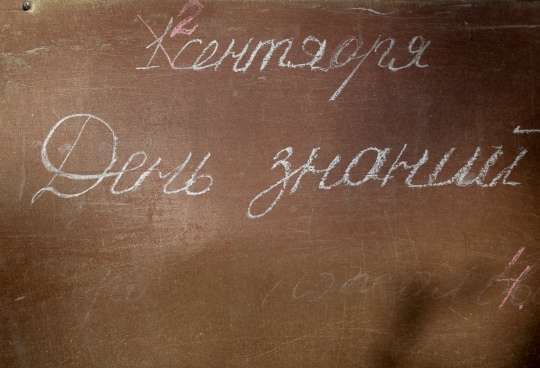 2 сентября
День знаний